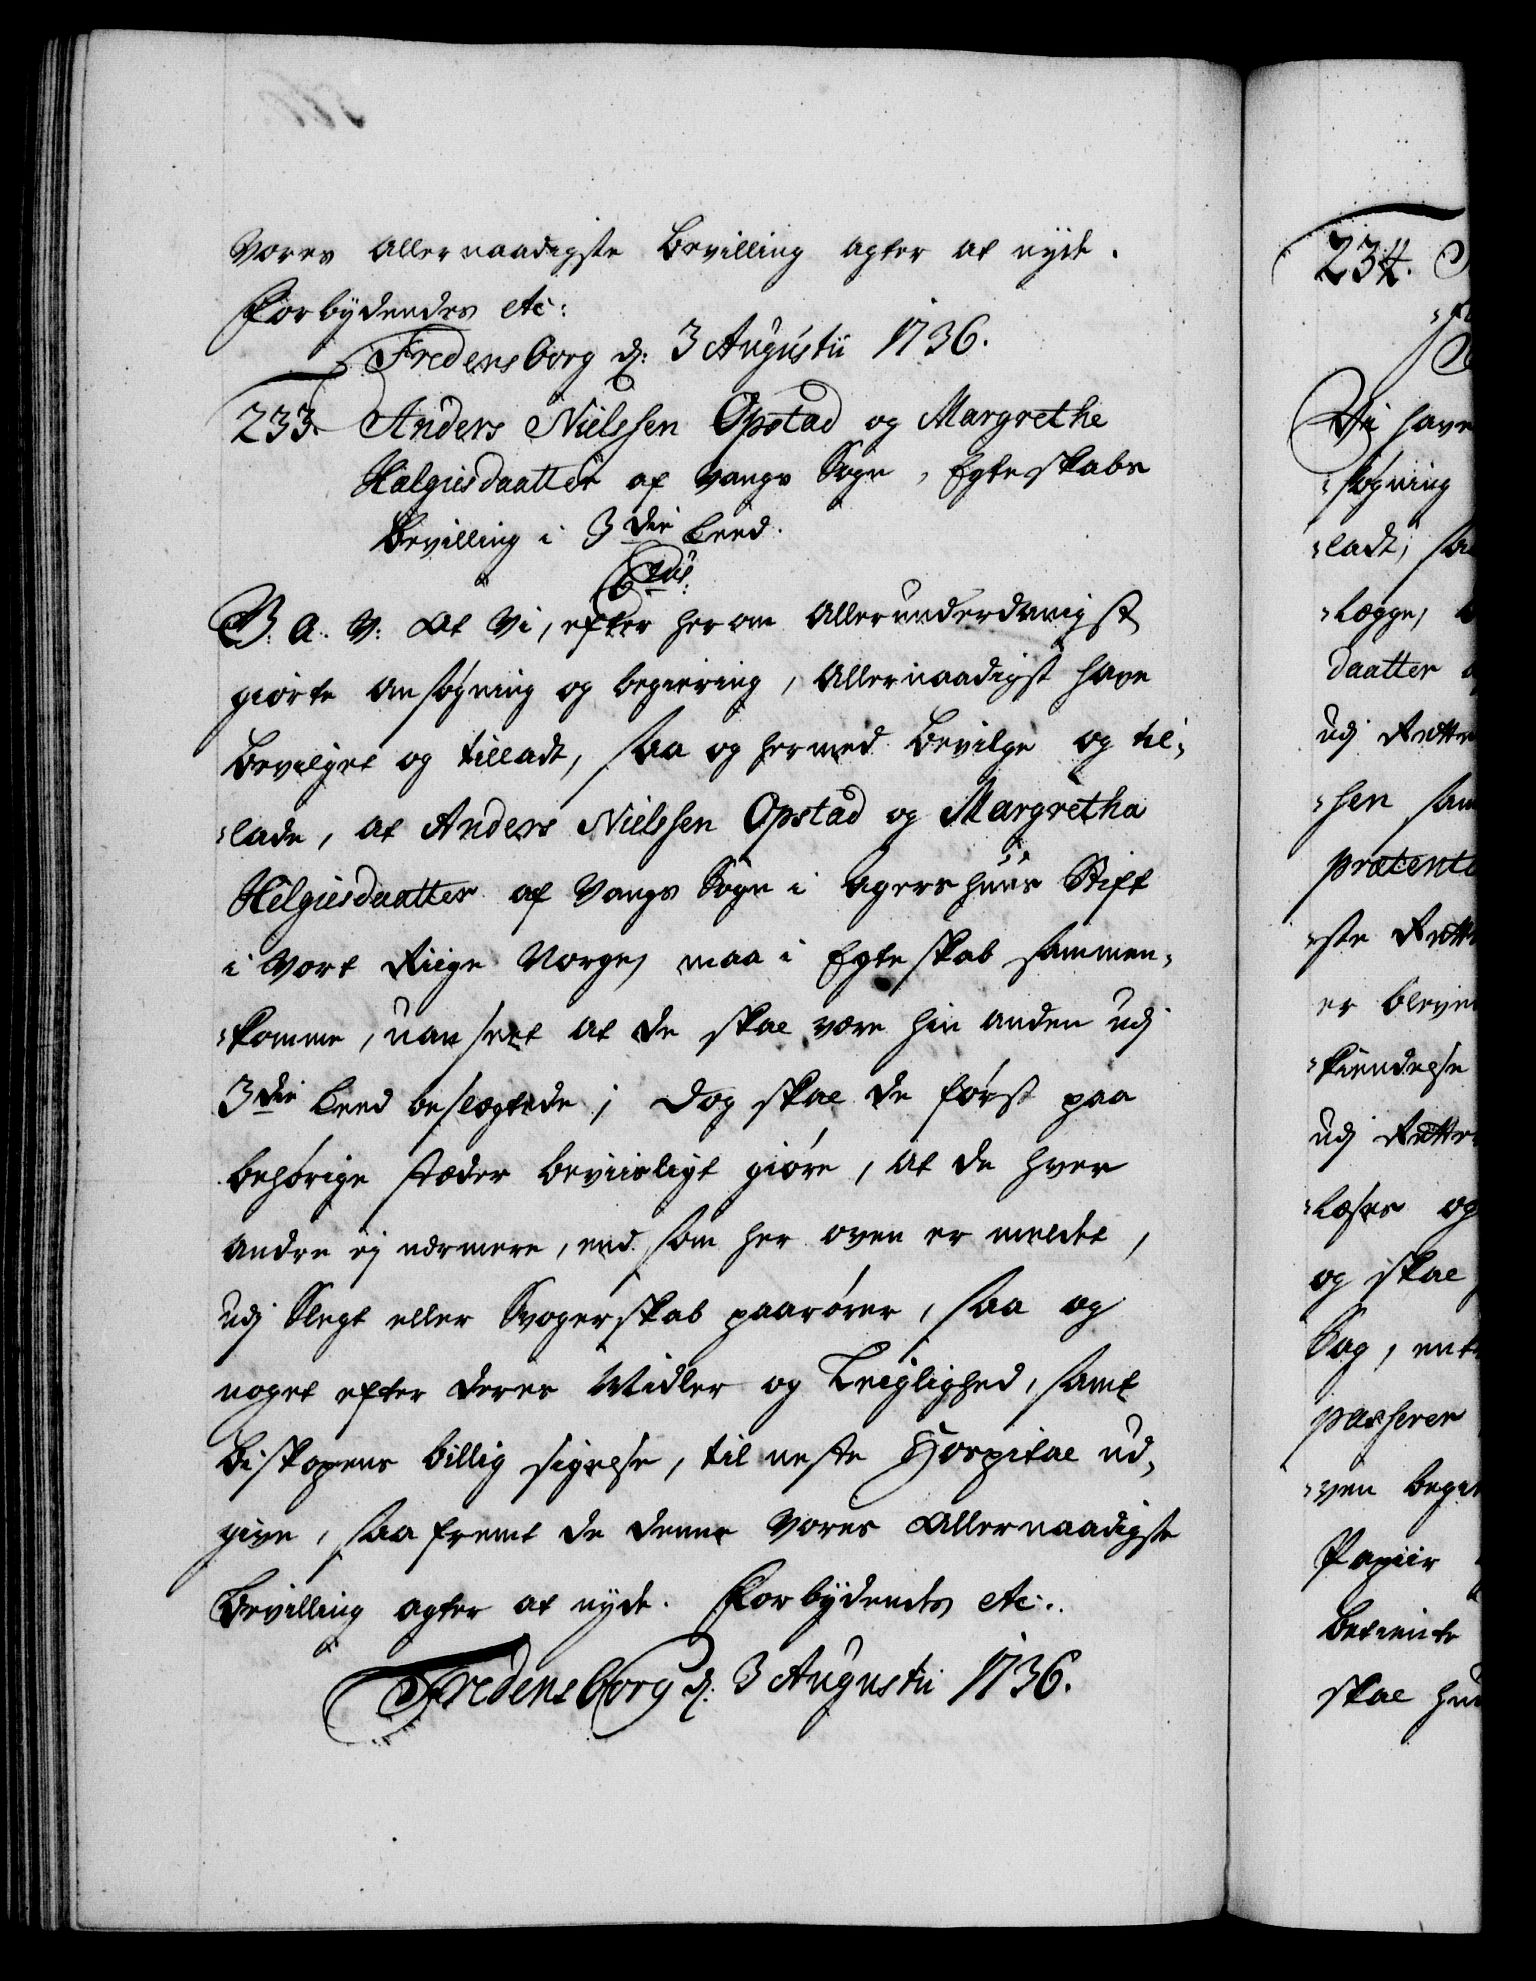 Vores allernaadigste Bevilling agter at nyde.
Forbydendes etc:
Fredensborg d: 3 Augustii 1736.
233. Anders Nielssen Opstad og Margrethe
Hælgiesdaatter af Vangs Sogn, Egteskabs
Bevilling i 3die Leed.
C6tus.
G: A: V: At Vi, efter herom allerunderdanigst
giorte ansøgning og begiering, allernaadigst have
bevilget og tilladt, saa og hermed bevilge og til-
-lade, at Anders Nielssen Opstad og Margretha
Helgiesdaatter af Vangs Sogn i Agershuus Stift
i Vort Riige Norge, maa i Egteskab sammen-
-komme, uanseet at de skal være hin anden udj
3die Leed beslægtede; dog skal de først paa
behørige stæder beviisligt giøre, at de hver
andre ej nærmere, end som her oven er meldt,
udj Slegt eller Svogerskab paarører, saa og
noget efter deres Midler og Leiglighed, samt
Biskopens billig sigelse, til neste Hospital ud-
give, saafremt de denne Vores Allernaadigste
Bevilling agter at nyde. Forbydendes etc:.
Fredensborg d: 3 Augustii 1736.
234.
Vi have
-søgning
-ladt, saa
-legge,
daatter
udj Rette
-sen sam
prætente
-ste Rette
er bleve
-kiendelse
udj Rette
-læses og
og skal
Sag, ent
passerer
-ven begi
Papiir
betiente
skal hu